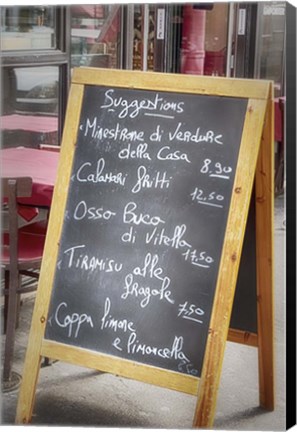 Suggestions
Minestrone di verdure
della Casa 8.90
Calamari fritti
12.50
Osso Buco
di vitella
17.50
Tiramisu alle
fragole 7.50
Coppa limone
e limoncello
7.50